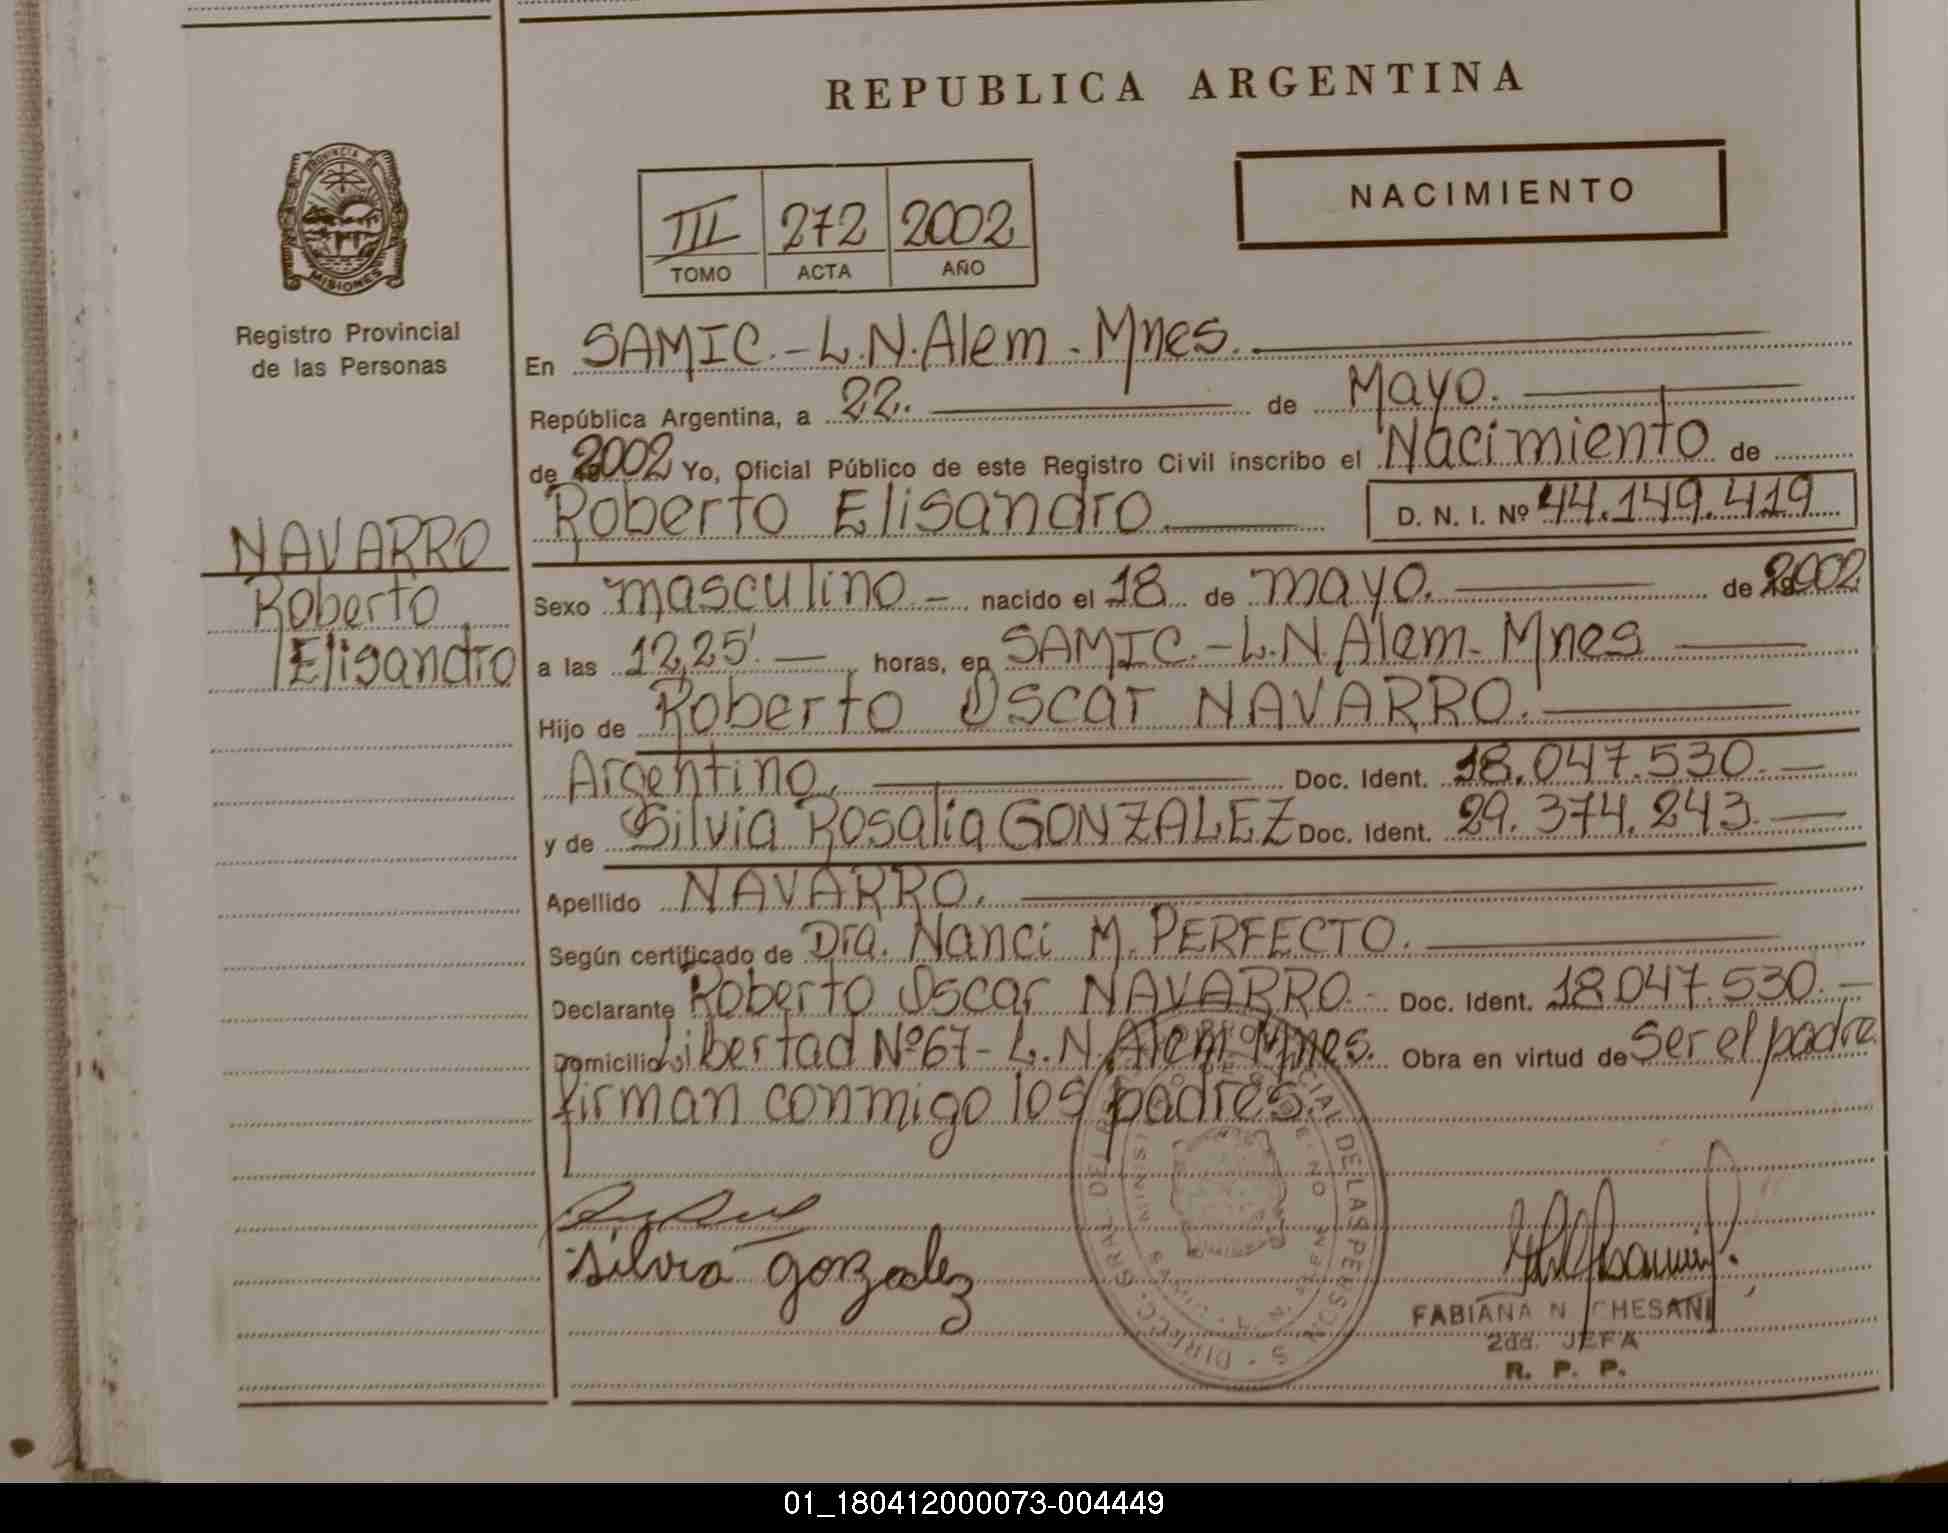 REPUBLICA ARGENTINA
NACIMIENTO
III 272 2002
TOMO ACTA AÑO
PROVINCIA DE
MISIONES
Registro Provincial
de las Personas
NAVARRO
Roberto
Elisandro
En SAMIC.-L.N.Alem-Mnes.
República Argentina, a 22. de Mayo.
de 2002 Yo, Oficial Público de este Registro Civil inscribo el Nacimiento de
Roberto Elisandro D. N. I. Nº 44.149.419
Sexo masculino nacido el 18 de mayo. de 2002
a las 12,25' horas, en SAMIC.-L.N.Alem-Mnes
Hijo de Roberto Oscar NAVARRO.
Argentino. Doc. Ident. 18.047.530.-
y de Silvia Rosalia GONZALEZ Doc. Ident. 29.374.243.-
Apellido NAVARRO.
Según certificado de Dra. Nanci M. PERFECTO.
Declarante Roberto Oscar NAVARRO.- Doc. Ident. 18.047.530.-
Domicilio Libertad Nº67-L.N.Alem-Mnes. Obra en virtud de ser el padre
firman conmigo los padres.
silvia gonzalez
FABIANA N CHESANI
2da. JEFA
R. P. P.
01_180412000073-004449